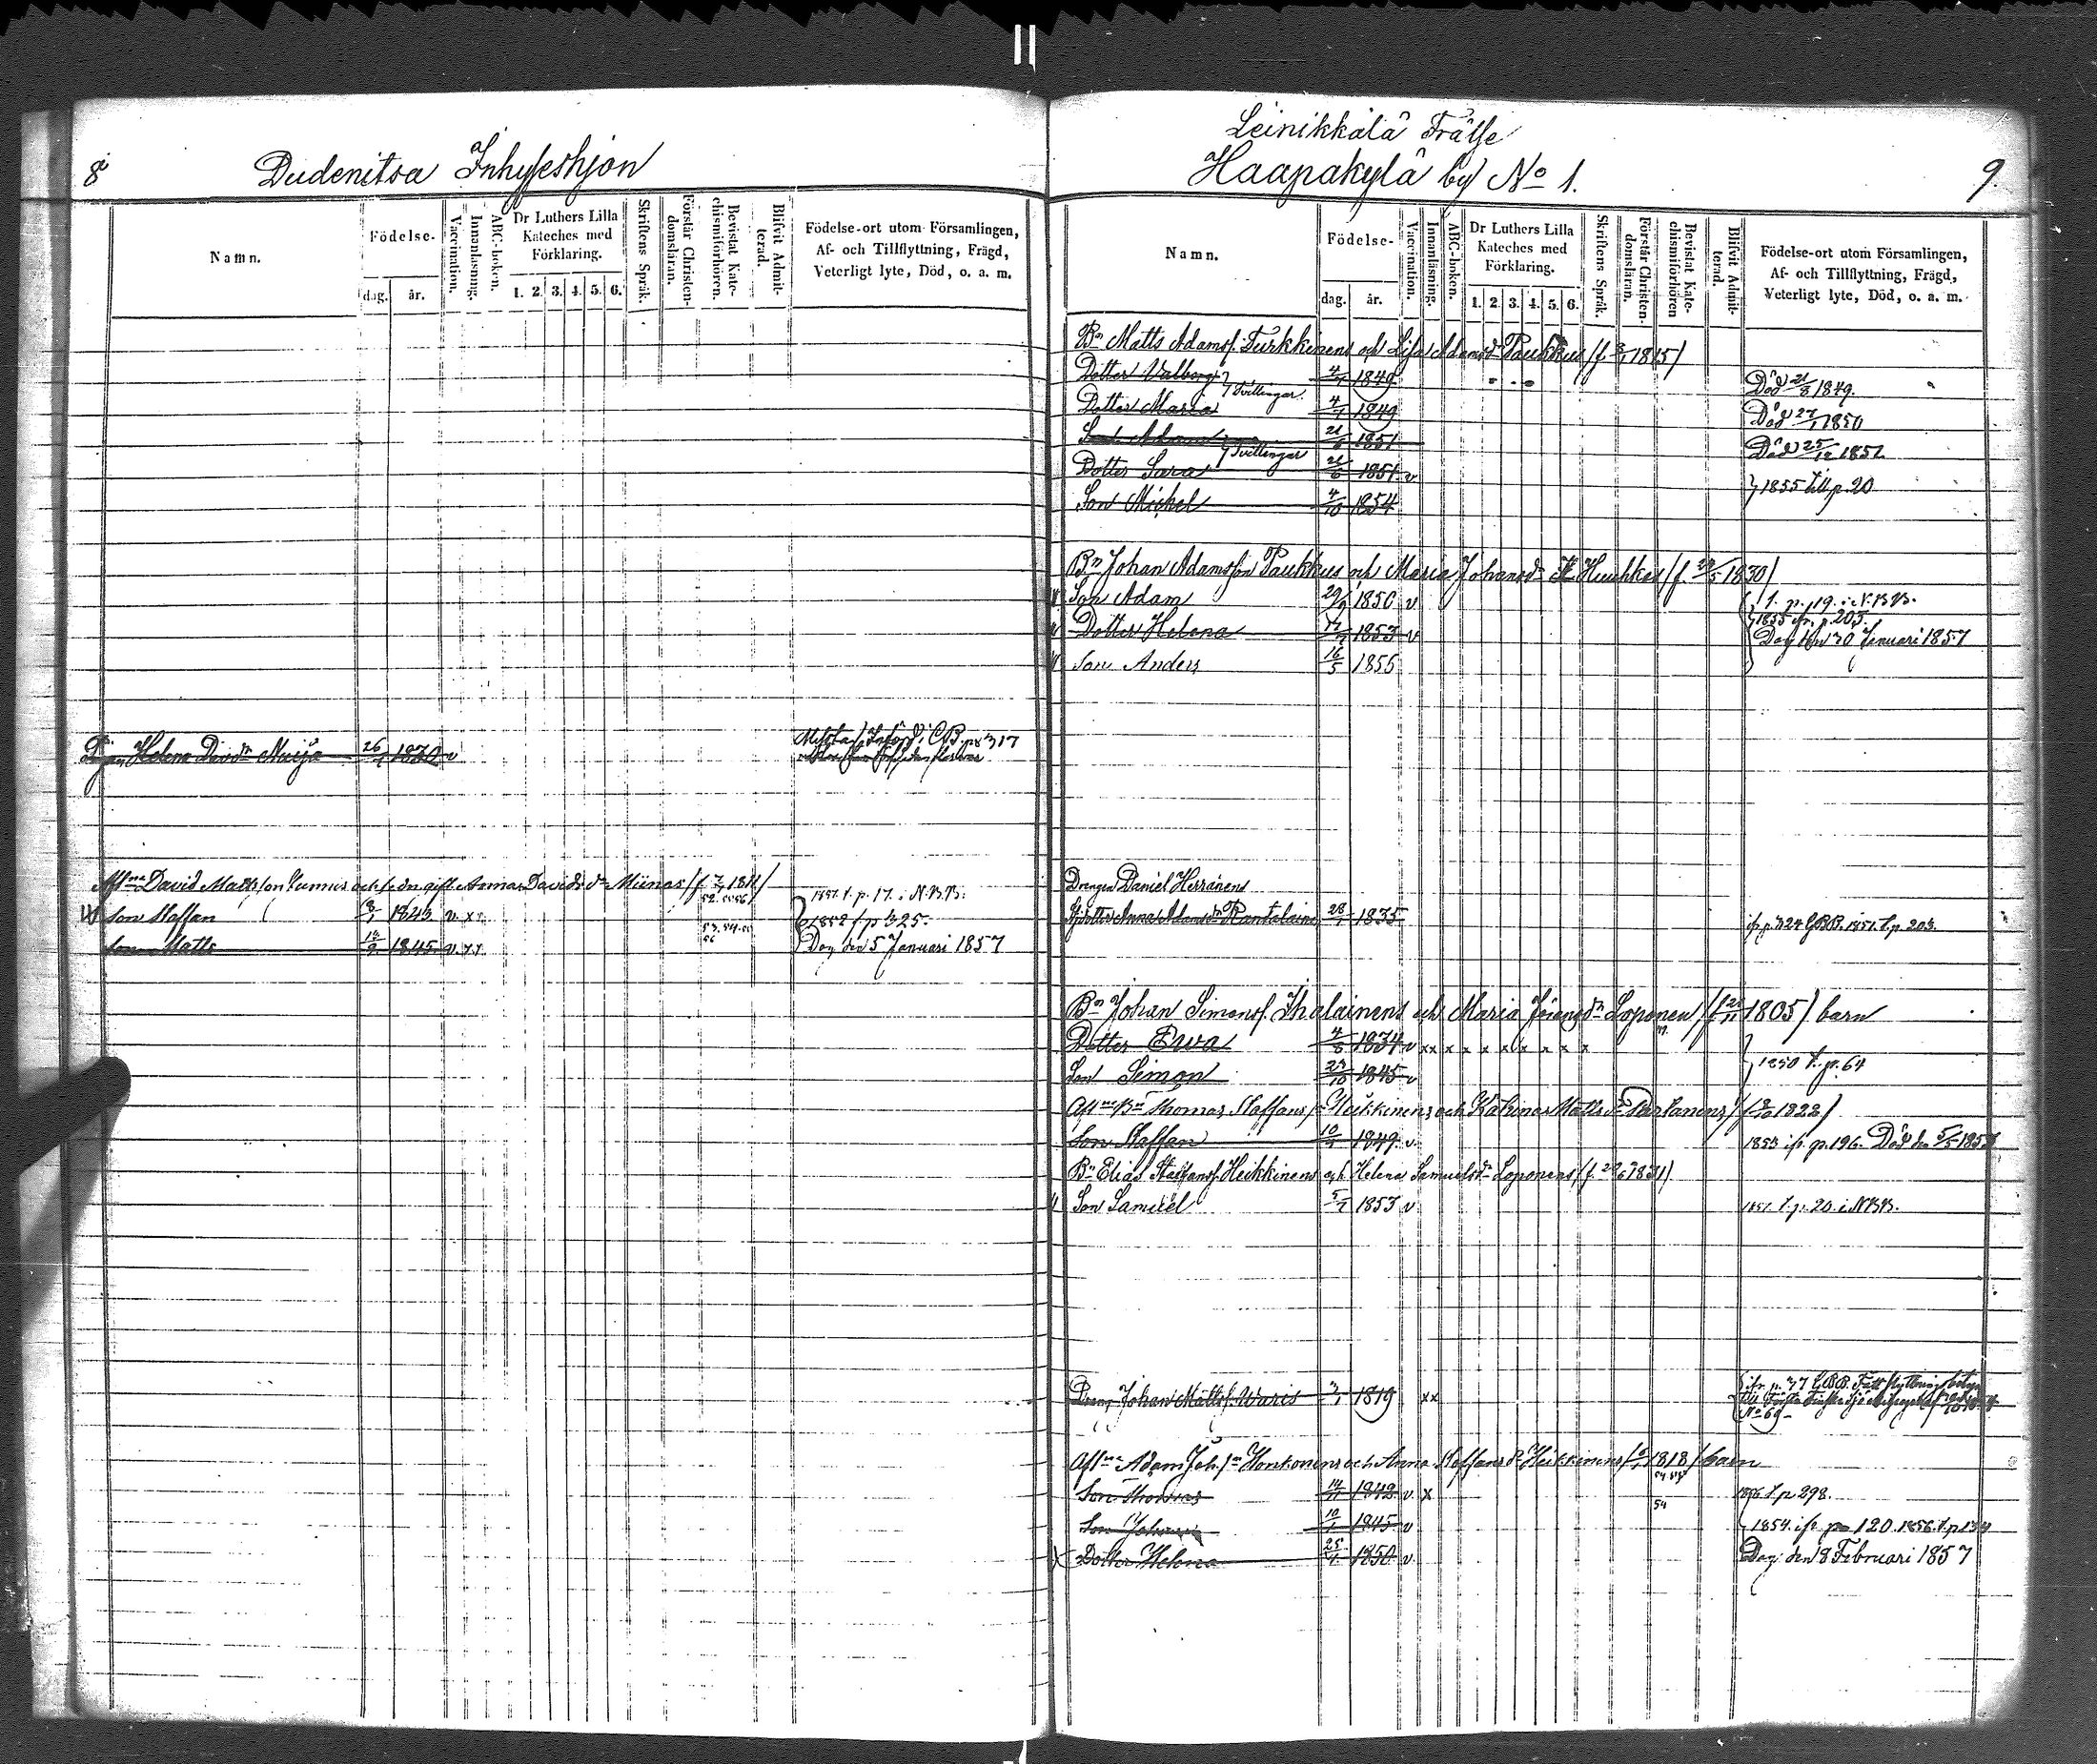 8
Dudenitsa Inhyseshjon
Namn.
Födelse.
dag.
år.
Vaccination.
Innanläsning.
ABC-boken.
Dr Luthers Lilla
Kateches med
Förklaring.
1. 2. 3. 4. 5. 6.
Skriftens Språk.
Förstår Christen-
domsläran.
Bevistat Kate-
chismiförhören.
Blifvit Admit-
terad.
Födelse-ort utom Församlingen,
Af- och Tillflyttning, Frägd,
Veterligt lyte, Död, o. a. m.
Helena Davdr 26 1820 v
David Matsson och Anna Davidsdr 1811
Son Staffan 8/1 1843 v. xx 1857 t. p. 17. i N.B.B.
1852 f p 325.
Son Matts 1845 v. xx Dog den 5 Januari 1857
Leinikkälä Frälse
Haapakylä by No 1.
9.
Namn.
Födelse-
dag.
år.
Vaccination.
Innanläsning.
ABC-boken.
Dr Luthers Lilla
Kateches med
Förklaring.
1. 2. 3. 4. 5. 6.
Skriftens Språk.
Förstår Christen-
domsläran.
Bevistat Kate-
chismiförhören
Blifvit Admit-
terad.
Födelse-ort utom Församlingen,
Af- och Tillflyttning, Frägd,
Veterligt lyte, Död, o. a. m.
Bn Matts Adamss. Turkkinens och Lisa Adamsdr Paukkus 1815
Dotter Valborg Tvillingar 4/1 1849 Död 21/8 1849.
Dotter Maria 4/1 1849 Död 27/1 1850
Son Adam Tvillingar 21/6 1851 Död 25/12 1851
Dotter Sara 21/6 1851 v
Son Mickel 4/10 1854 1855 till p. 20
Bn Johan Adamsson Paukkus och Maria Johansdr Huuhkas 1830
Son Adam 1850 v t. p. 19. i N.B.B.
1855 fr. p. 203.
Dotter Helena 1853 v Dog den 30 Januari 1857
Son Anders 16/5 1855
Drengen Daniel Herranens
Anna Adamsdr Rantalains 28/1 1835 ifr. p. 324 G.B.B. 1851. t. p. 203.
Bn Johan Simonss. Ihalainens och Maria Loponen 1805 barn
Dotter Ewa 4/8 1834 v xx x x x x x x x x
Son Simon 1845 v 1850 t. p. 64
Bn Thomas Staffanss Heikkinens och Katarina Mattsdr 1822
Son Staffan 10 1849 v. 1853 ifr. p. 196. Död
Bn Elias Staffanss. Heikkinens och Helena Samuelsdr Loponens 1831
Son Samuel 5/1 1853 v 1857. t. p. 20. i N.B.B.
Dreng Johan Mattss. Waris 1819 xx
No 69
Adam Johss Honkonens och Anna Staffansdr Heikkinens 1818 barn
Son Thomas 1842 v. x 1856 t. p 298.
54
Son Johan 10/1 1845 v 1854. ifr p 120. 1856. t. p
Dotter Helena 1850 v. Dog den 8 Februari 1857